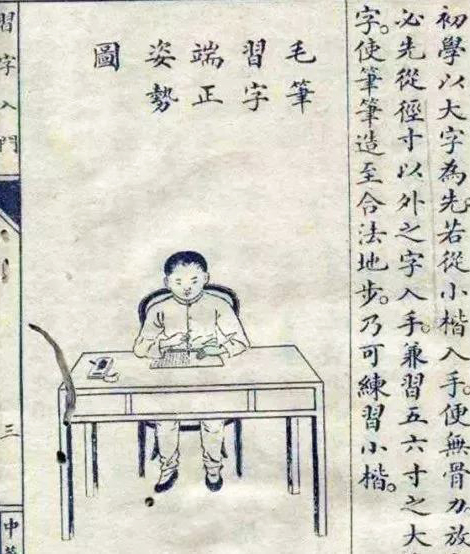 初學以大字為先若從小楷入手。便無骨力。放
必先從徑寸以外之字入手。兼習五六寸之大
字。使筆筆造至合法地步。乃可練習小楷。
毛筆
習字
端正
姿勢
圖
習字入門
三
中